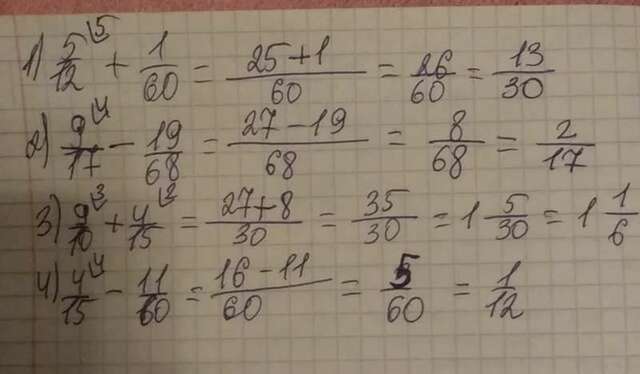 1) 5/12 ⌊5 + 1/60 = 25+1/60 = 26/60 = 13/30
2) 9/17 ⌊4 - 19/68 = 27-19/68 = 8/68 = 2/17
3) 9/10 ⌊3 + 4/15 ⌊2 = 27+8/30 = 35/30 = 1 5/30 = 1 1/6
4) 4/15 ⌊4 - 11/60 = 16-11/60 = 5/60 = 1/12